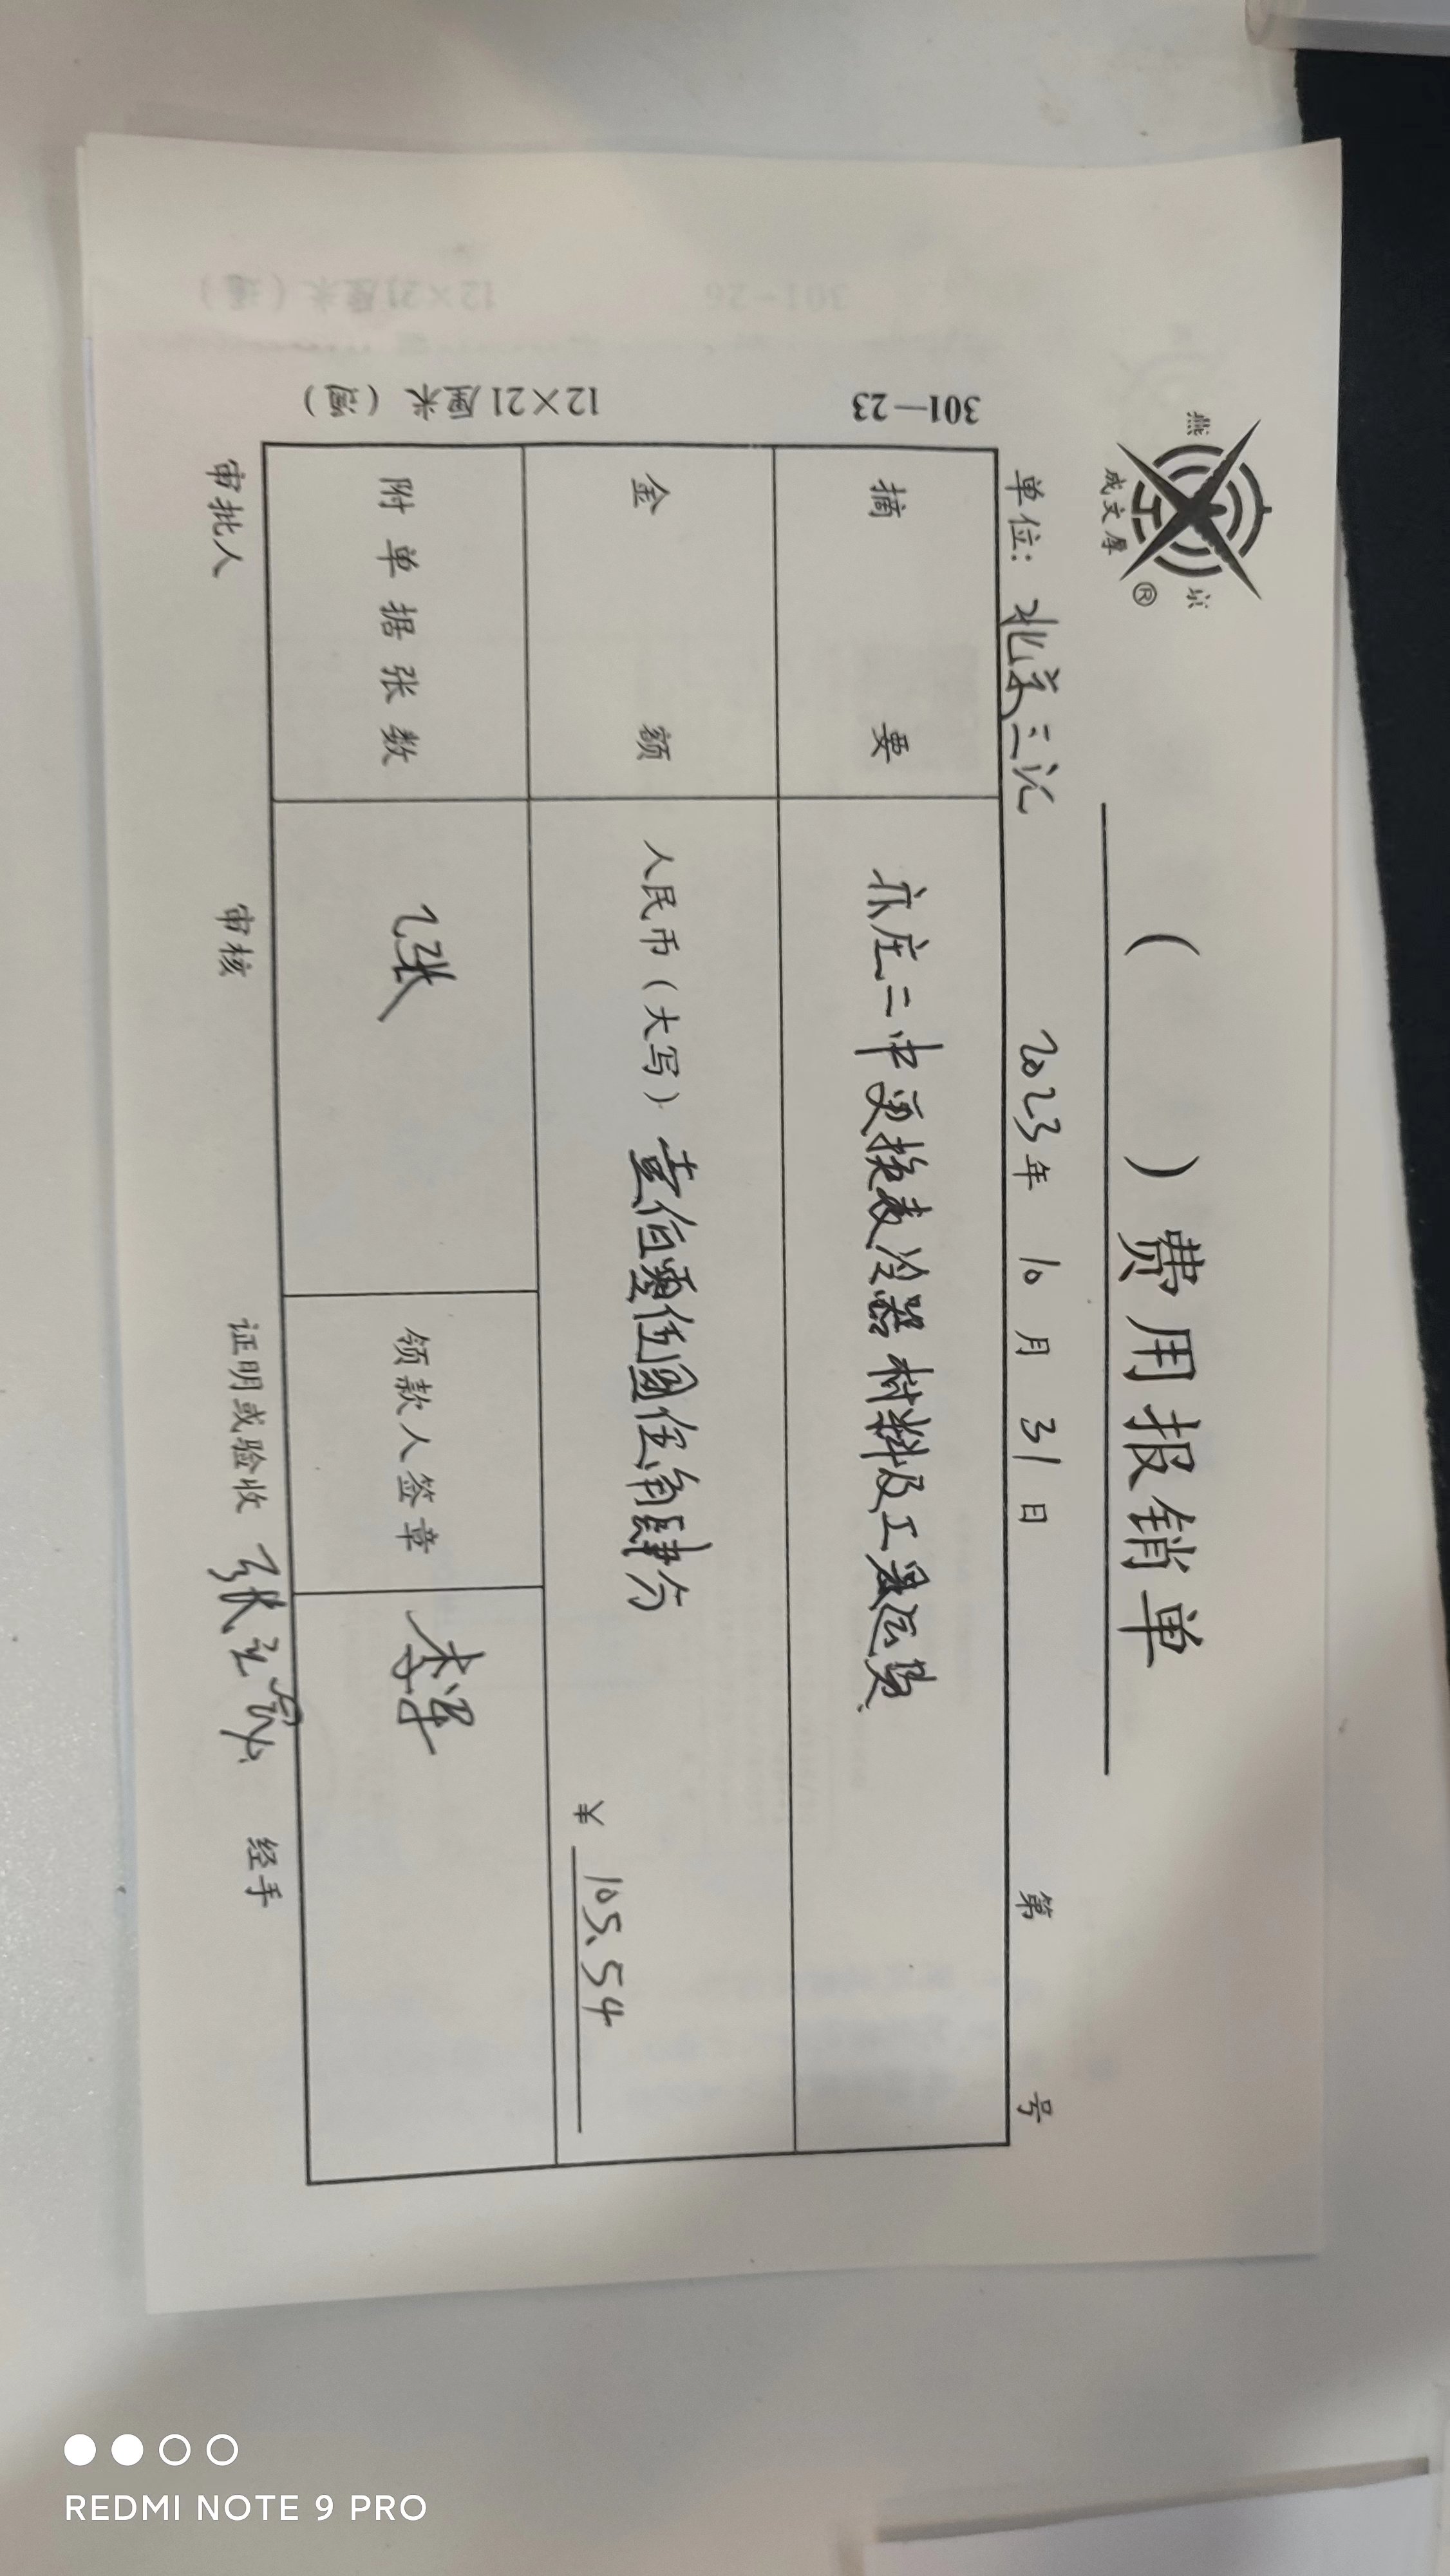 燕京
成文厚 ®
（ ）费用报销单
单位：北京三汇 2023年 10月 31日 第 号
301—23
12×21厘米（通）
摘要 亦庄二中更换表冷器材料及工具运费
金额 人民币（大写）壹佰零伍圆伍角肆分
¥ 105.54
附单据张数 1张 领款人签章 李军
审批人 审核 证明或验收 张立 经手
301-26
12×21厘米（通）
REDMI NOTE 9 PRO